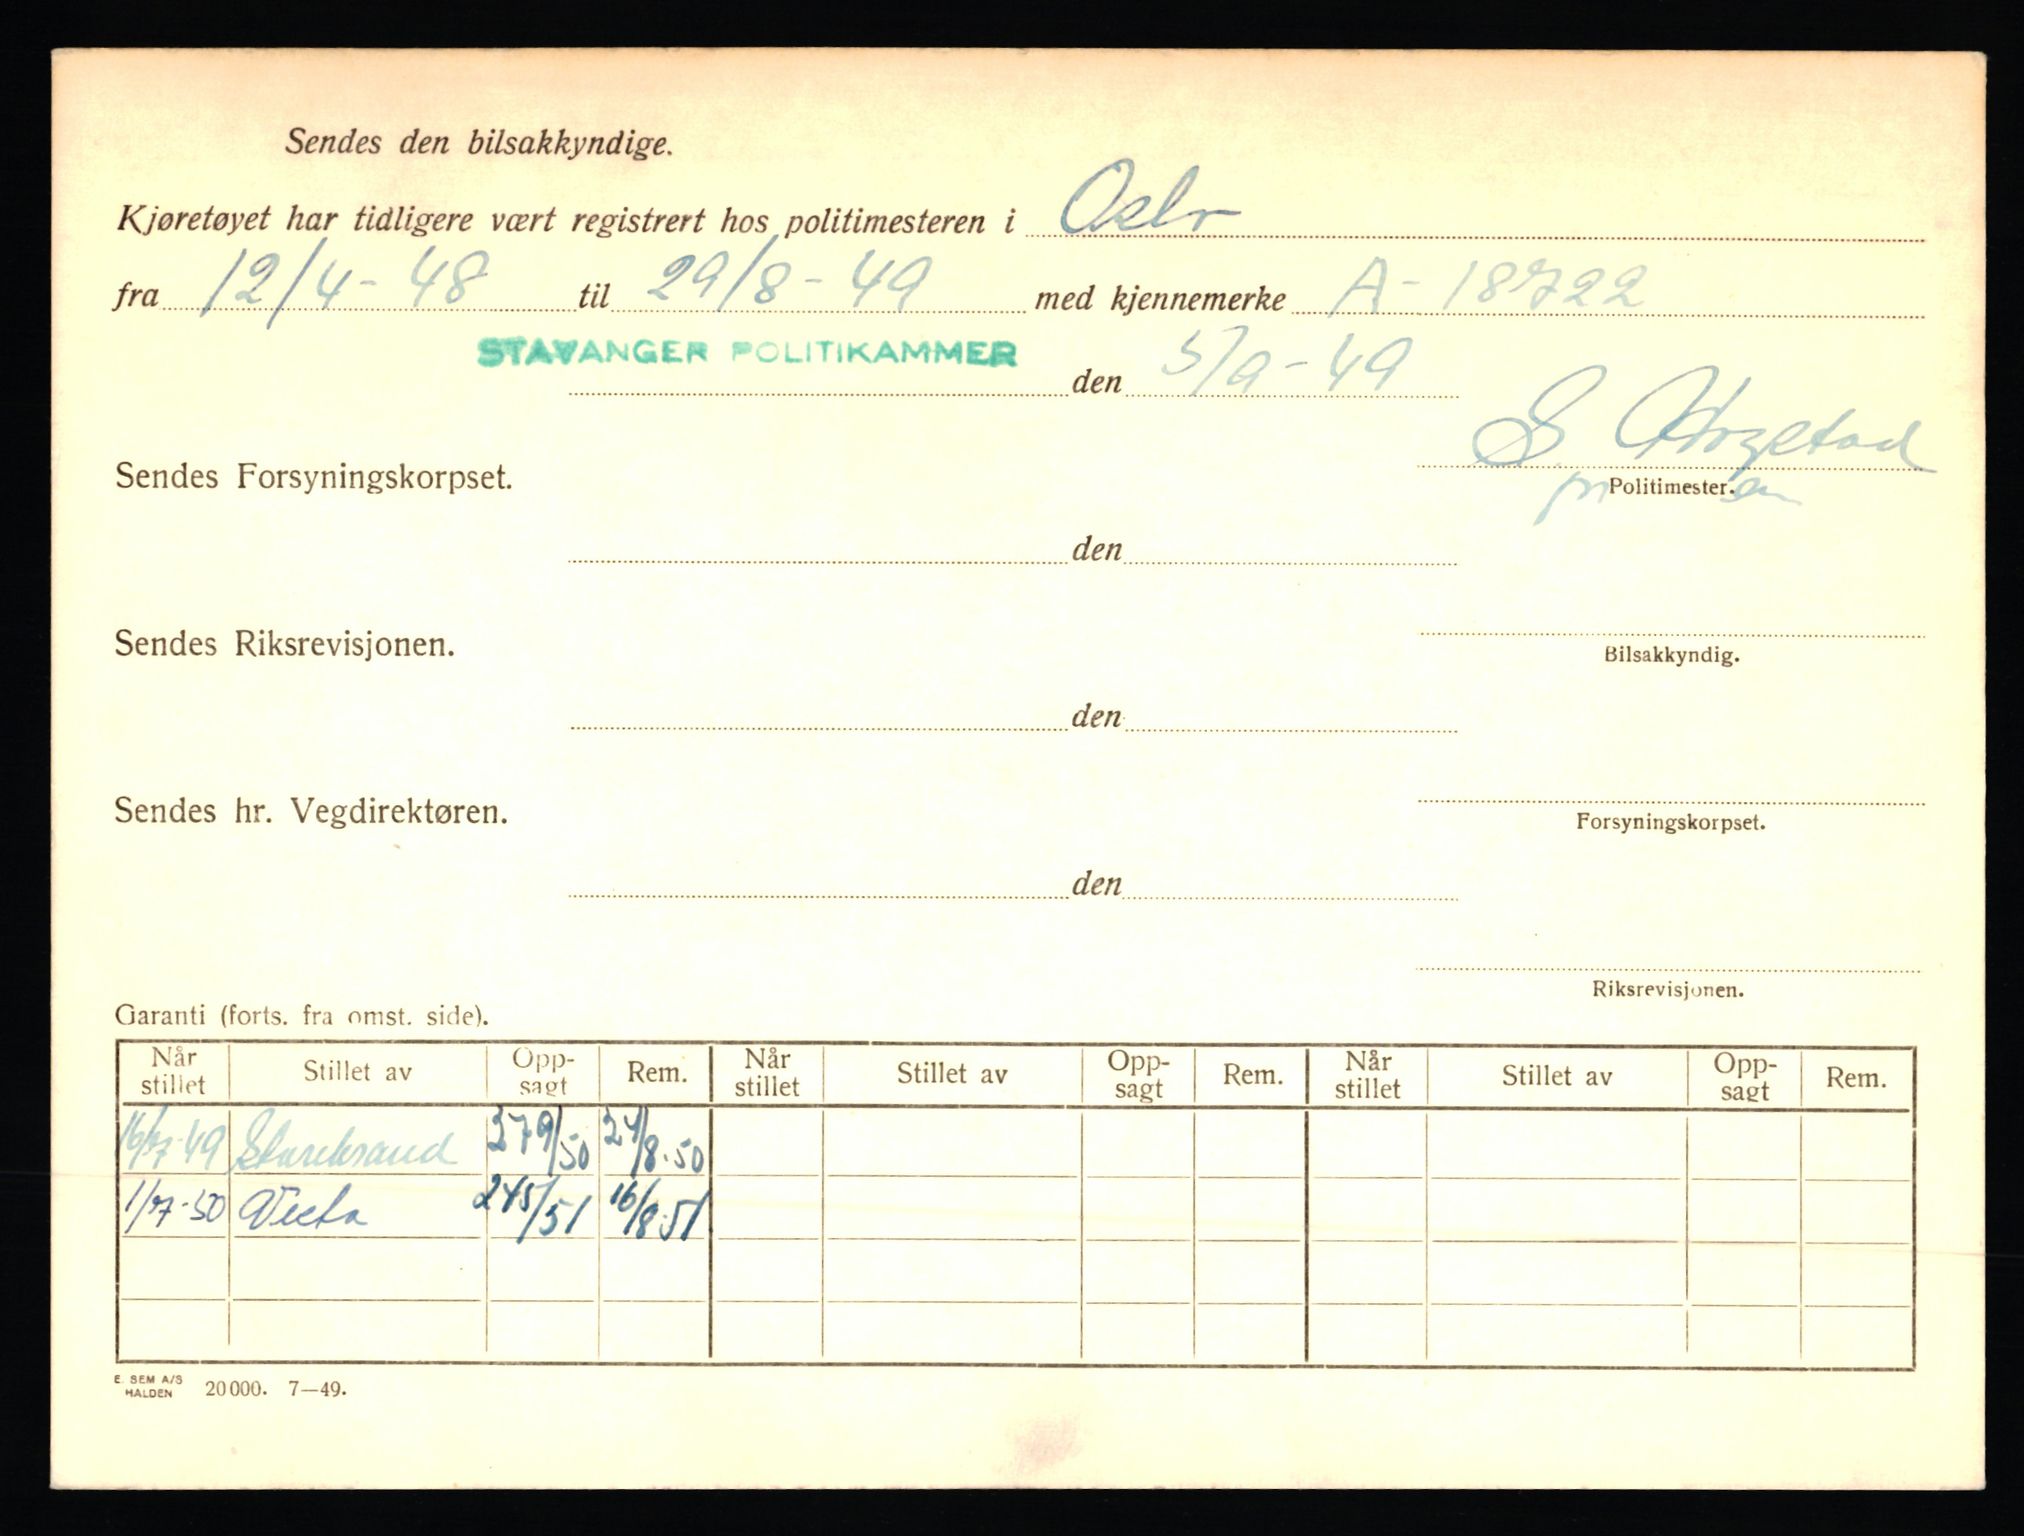 Sendes den bilsakkyndige.
Kjøretøyet har tidligere vært registrert hos politimesteren i Oslo
fra 12/4-48 til 29/8-49 med kjennemerke A-18722
STAVANGER POLITIKAMMER den 5/9-49
S.
Sendes Forsyningskorpset.
Politimester.
den
Sendes Riksrevisjonen.
Bilsakkyndig.
den
Sendes hr. Vegdirektøren.
Forsyningskorpset.
den
Riksrevisjonen.
Garanti (forts. fra omst. side).
Når stillet Stillet av Opp-sagt Rem. Når stillet Stillet av Opp-sagt Rem. Når stillet Stillet av Opp-sagt Rem.
16/7-49 Storebrand 379/50 24/8.50
1/7-50 Vesta 245/51 16/8.51
E. SEM A/S
HALDEN 20000. 7—49.